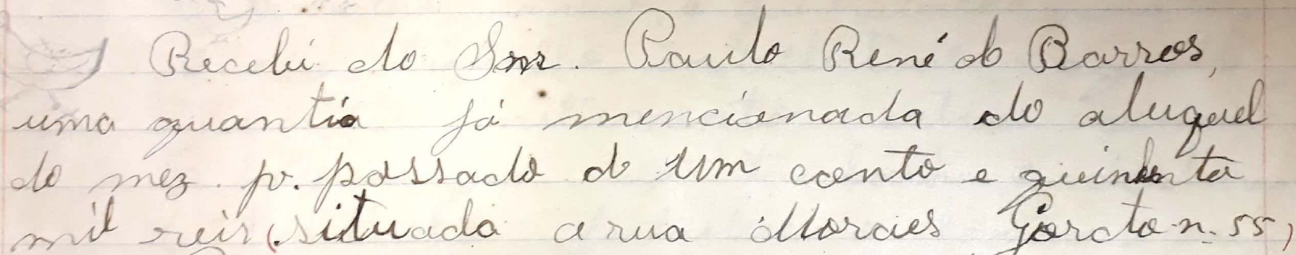 Recebi do Snr. Paulo René de Barros,
uma quantia já mencianada do aluguel
do mez p. passado de um conto e
mil reis (situada a rua Moraes n. 55,)